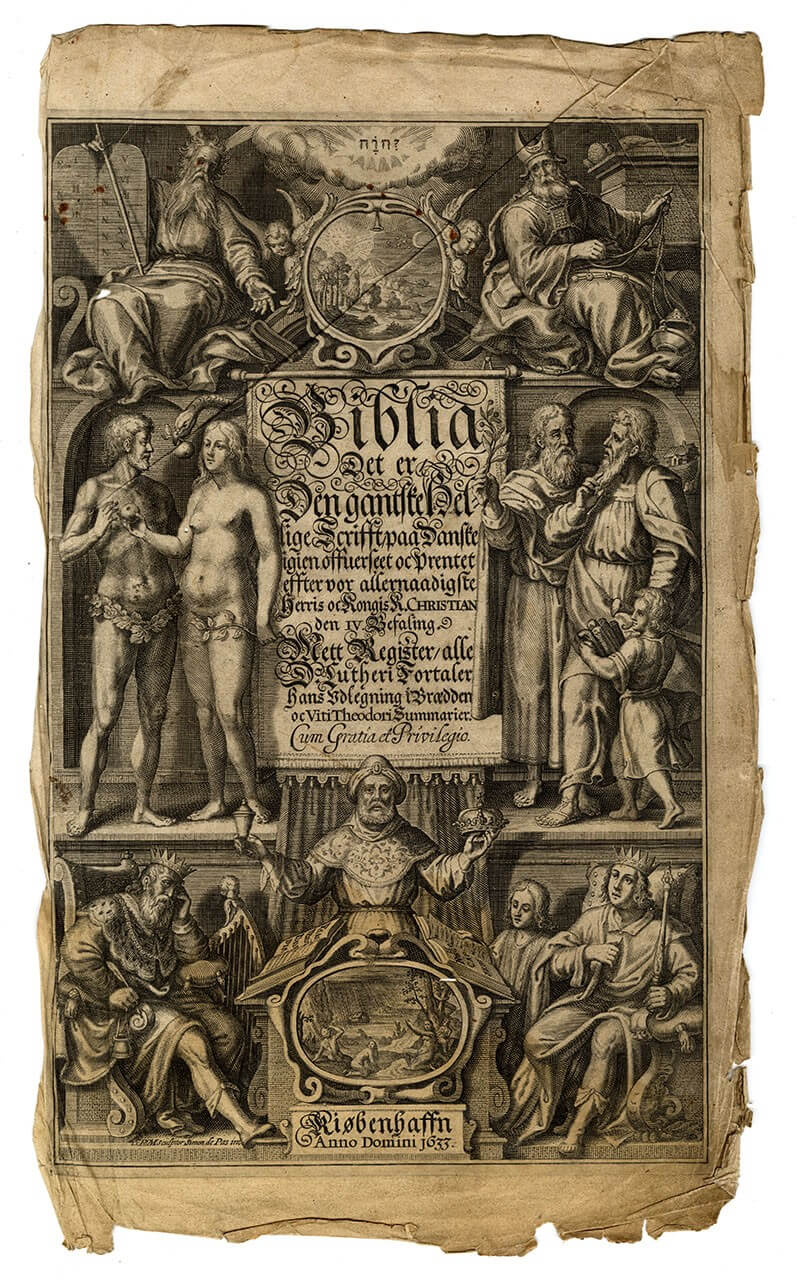 יְהוָֹה
Biblia
Det er
Den gantske Hel-
lige Scrifft, paa Danske
igien offuerseet oc Prentet
effter vor allernaadigste
Herris oc Kongis K. CHRISTIAN
den IV. Befaling.
Mett Register/ alle
D. Lutheri Fortaler
hans Vdlegning i Brædden
oc Viti Theodori Summarier.
Cum Gratia et Privilegio.
Kiøbenhaffn
Anno Domini 1633.
Sculptor Simon de Pas